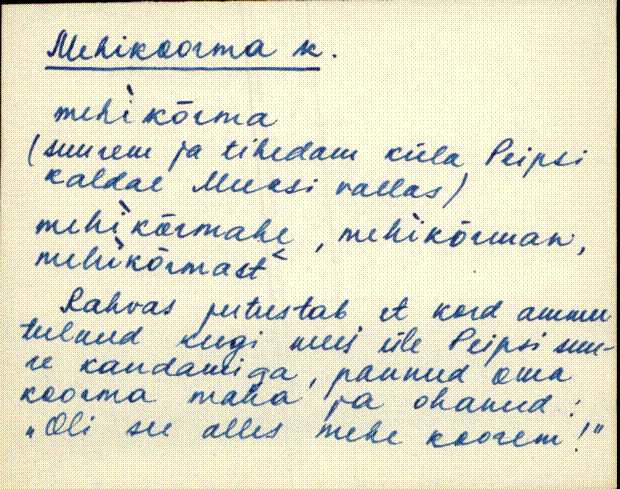 Mehikoorma k.
mehìkõrma
(suurem ja tihedam küla Peipsi
kaldal Meeksi vallas)
mehìkõrmahe, mehìkõrman,
mehìkõrmast<
Rahvas jutustab et kord ammu
tulnud keegi mees üle Peipsi suu-
re kandamiga, pannud oma
koorma maha ja ohanud:
„Oli see alles mehe koorem!"